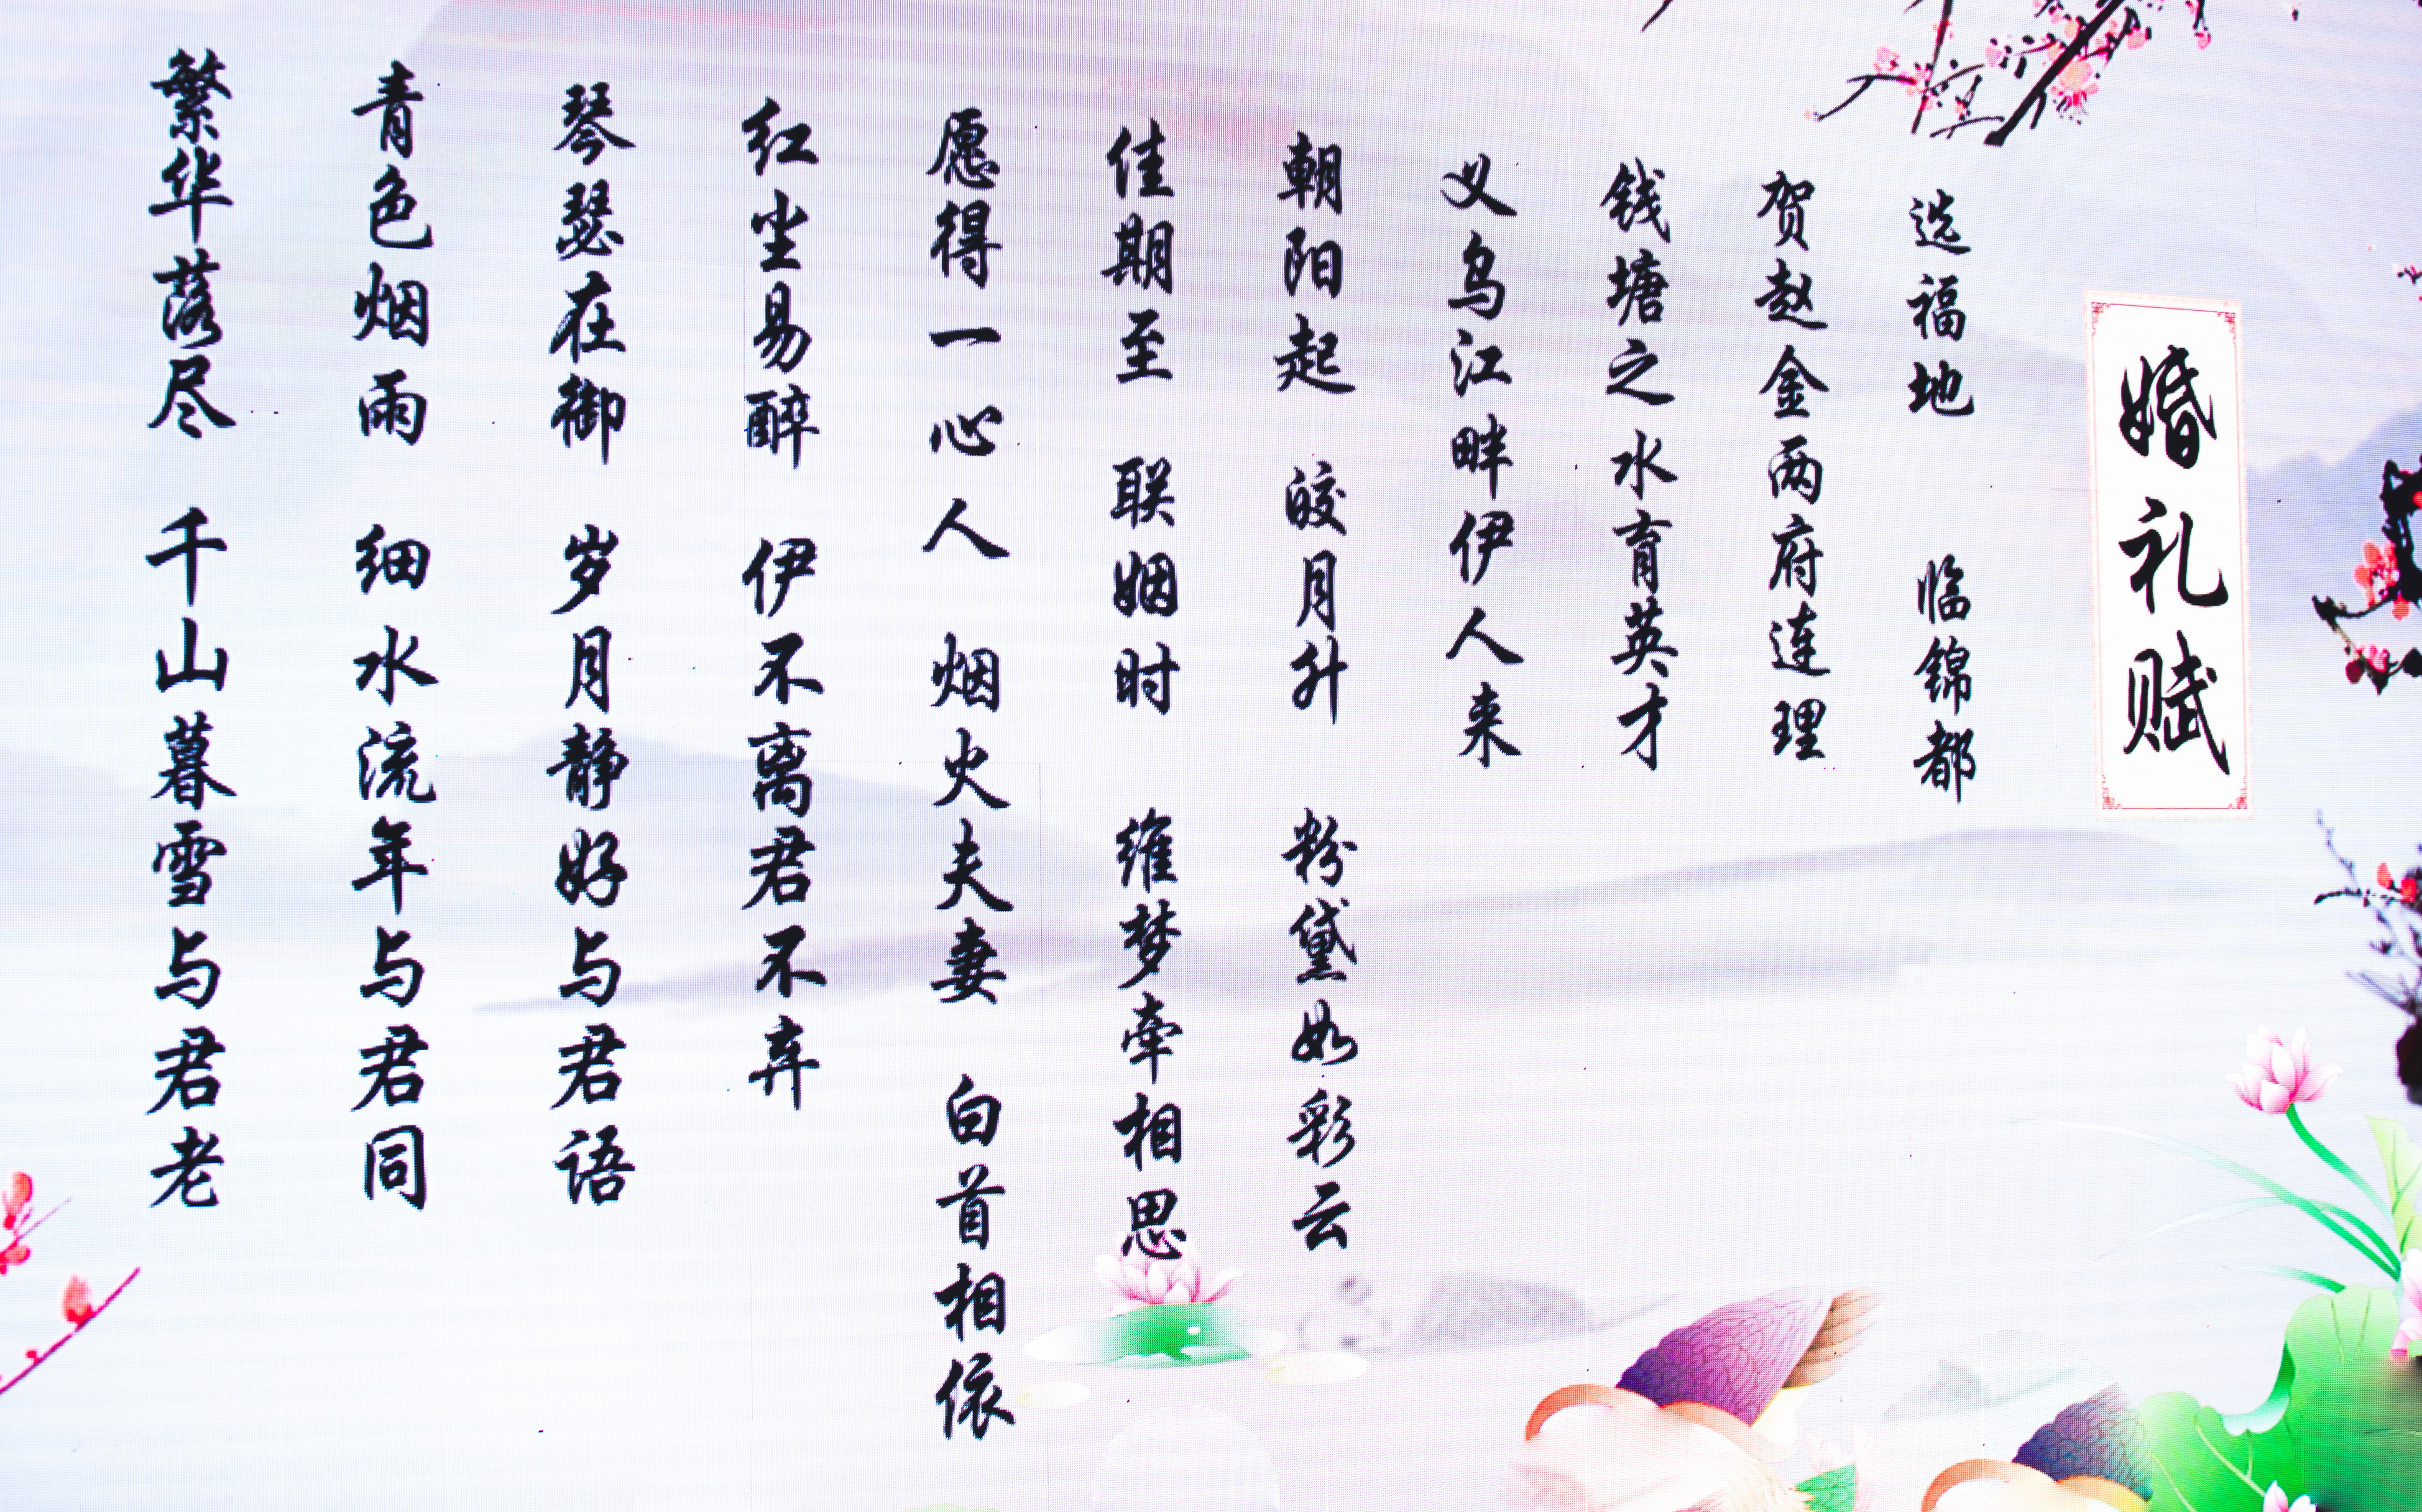 婚礼赋
选福地 临锦都
贺赵金两府连理
钱塘之水育英才
义乌江畔伊人来
朝阳起 皎月升 粉黛如彩云
佳期至 联姻时 维梦牵相思
愿得一心人 烟火夫妻 白首相依
红尘易醉 伊不离君不弃
琴瑟在御 岁月静好与君语
青色烟雨 细水流年与君同
繁华落尽 千山暮雪与君老